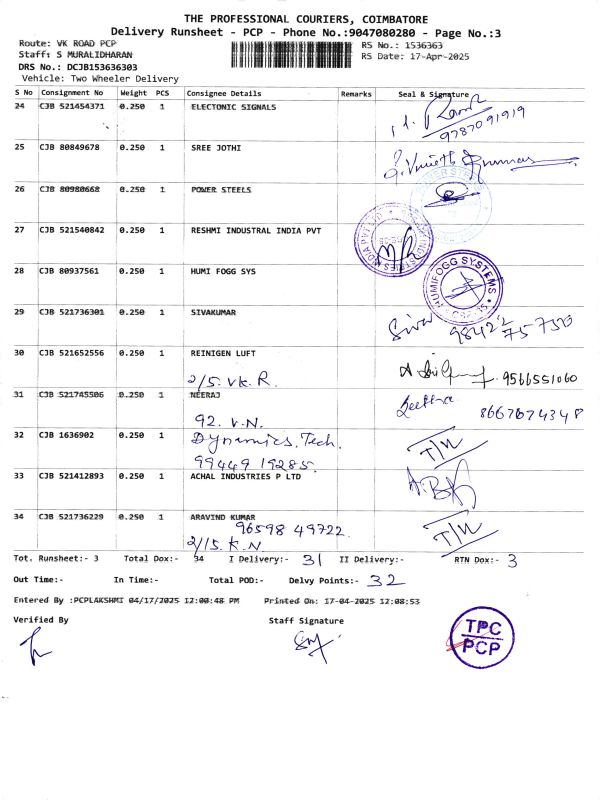 THE PROFESSIONAL COURIERS, COIMBATORE
Delivery Runsheet - PCP - Phone No.:9047080280 - Page No.:3
Route: VK ROAD PCP RS No.: 1536363
Staff: S MURALIDHARAN RS Date: 17-Apr-2025
DRS No.: DCJB153636303
Vehicle: Two Wheeler Delivery
S No Consignment No Weight PCS Consignee Details Remarks Seal & Signature
24 CJB 521454371 0.250 1 ELECTONIC SIGNALS
9787091919
25 CJB 80849678 0.250 1 SREE JOTHI
26 CJB 80980668 0.250 1 POWER STEELS
27 CJB 521540842 0.250 1 RESHMI INDUSTRAL INDIA PVT
28 CJB 80937561 0.250 1 HUMI FOGG SYS
HUMIFOGG SYSTEMS
29 CJB 521736301 0.250 1 SIVAKUMAR
Siva 98422 75 7550
30 CJB 521652556 0.250 1 REINIGEN LUFT
2/5. VK. R. 9566551060
31 CJB 521745506 0.250 1 NEERAJ
92. V.N. Geetha 8667674348
32 CJB 1636902 0.250 1 Dynamics. Tech. T/W
99449 19285.
33 CJB 521412893 0.250 1 ACHAL INDUSTRIES P LTD
34 CJB 521736229 0.250 1 ARAVIND KUMAR
96598 49722. T/W
2/15. K.N.
Tot. Runsheet:- 3 Total Dox:- 34 I Delivery:- 31 II Delivery:- RTN Dox:- 3
Out Time:- In Time:- Total POD:- Delvy Points:- 32
Entered By :PCPLAKSHMI 04/17/2025 12:00:48 PM Printed On: 17-04-2025 12:08:53
Verified By Staff Signature
TPC
PCP